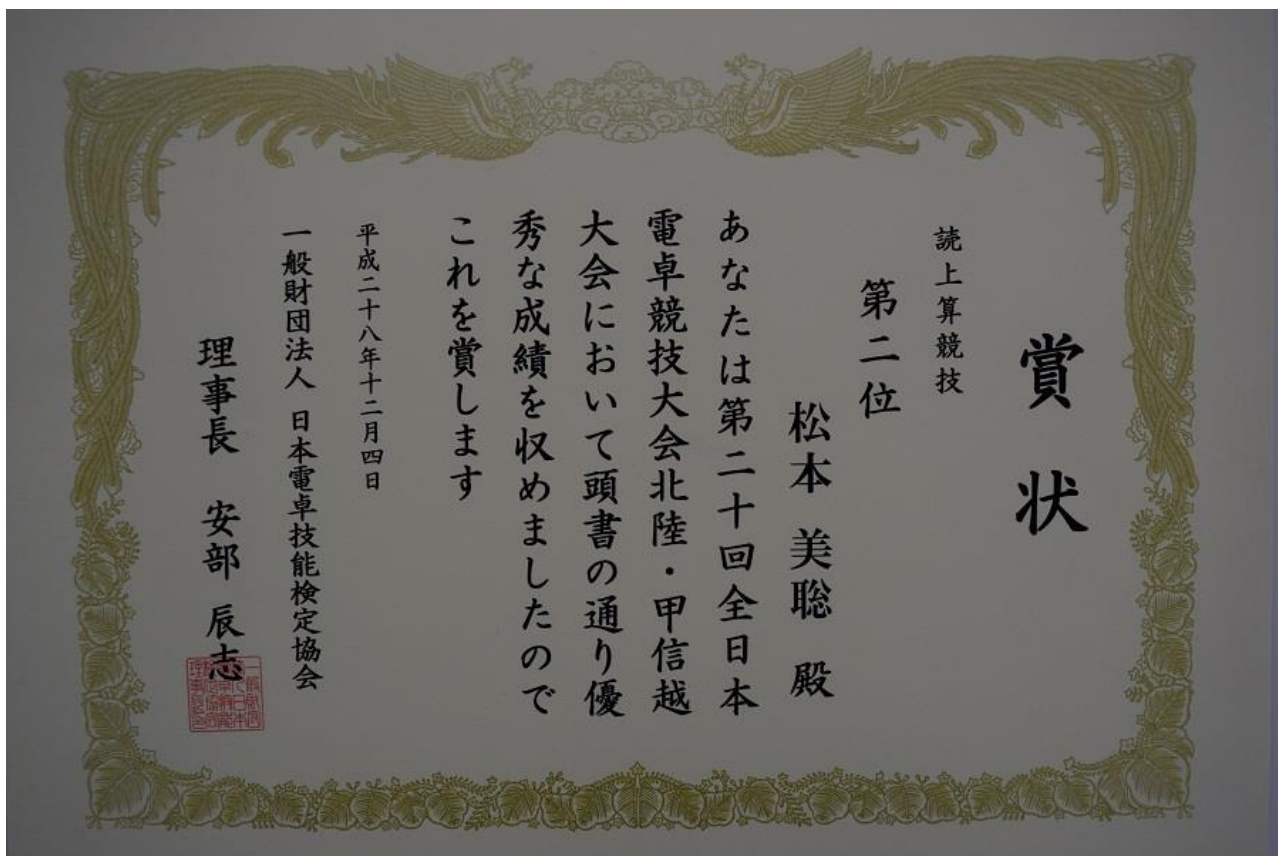 賞状
読上算競技
第二位
松本 美聡 殿
あなたは第二十回全日本
電卓競技大会北陸・甲信越
大会において頭書の通り優
秀な成績を収めましたので
これを賞します
平成二十八年十二月四日
一般財団法人 日本電卓技能検定協会
理事長 安部 辰志